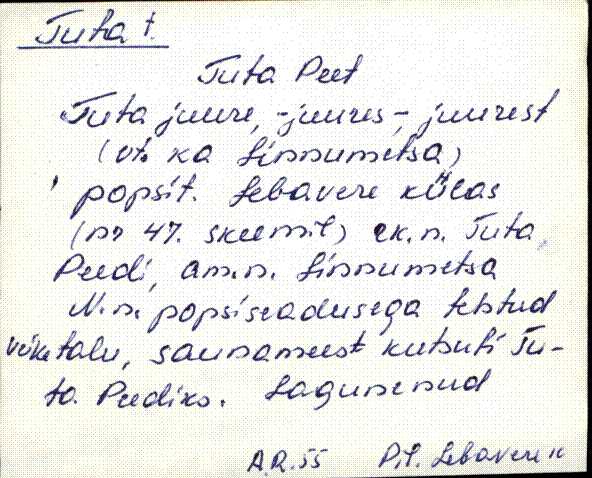 Tuta t.
Tuta Peet
Tuta juure, -juures, -juurest
(vt. ka Linnumetsa)
popsit. Lebavere külas
(nr 47. skeemil) rk.n. Tuta
Peedi, am.n. Linnumetsa
N.n. popsiseadusega tehtud
väiketalu, saunameest kutsuti Tu-
ta Peediks. Lagunenud
A.R. 55 P.il. Lebavere k